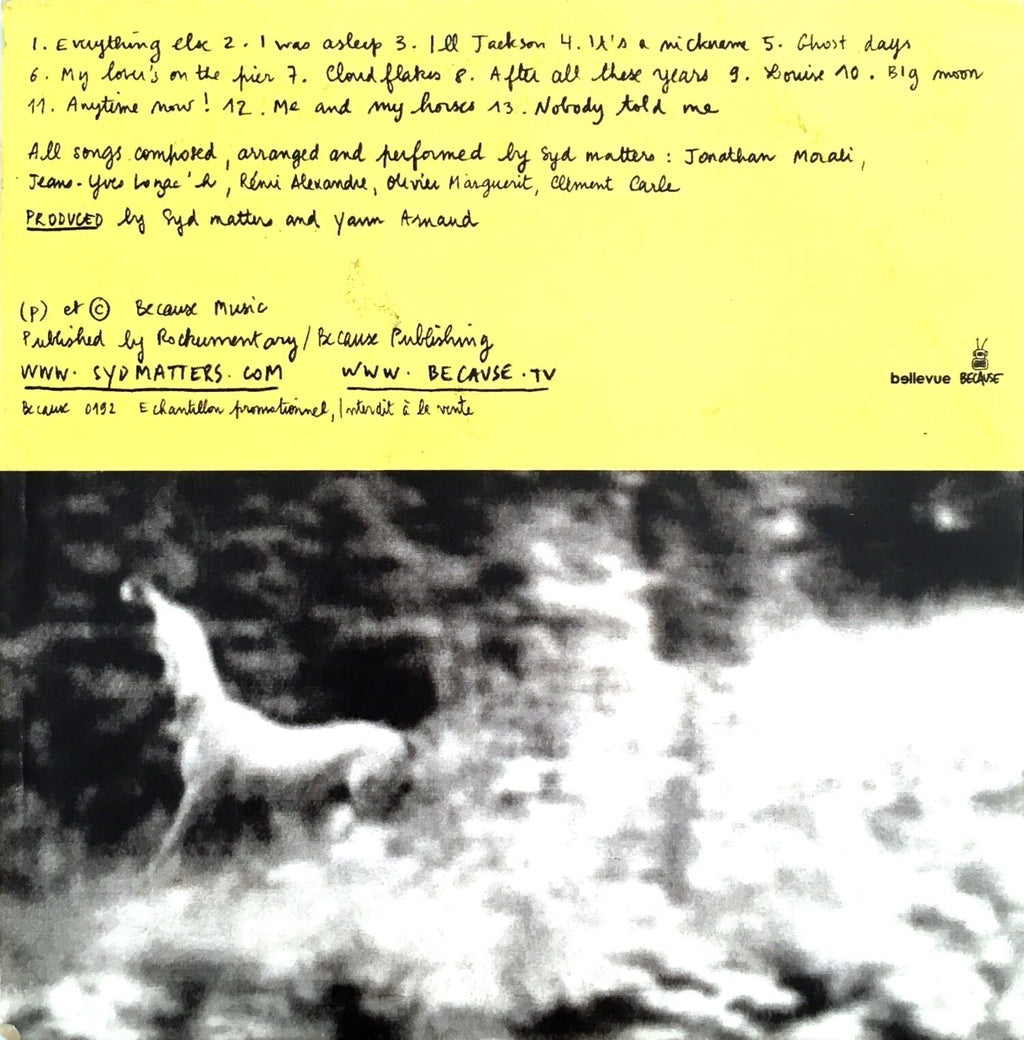 1. Everything else 2. I was asleep 3. Ill Jackson 4. It's a nickname 5. Ghost days
6. My lover's on the pier 7. Cloudflakes 8. After all these years 9. Louise 10. Big moon
11. Anytime now! 12. Me and my horses 13. Nobody told me
All songs composed, arranged and performed by Syd matters: Jonathan Morali,
Jean-Yves Lozac'h, Rémi Alexandre, Olivier Marguerit, Clément Carle
PRODUCED by Syd matters and Yann Arnaud
(p) et © Because Music
Published by Rockumentary/Because Publishing
WWW. SYDMATTERS. COM WWW. BECAUSE. TV
Because 0192 Echantillon promotionnel, Interdit à la vente
bellevue BECAUSE